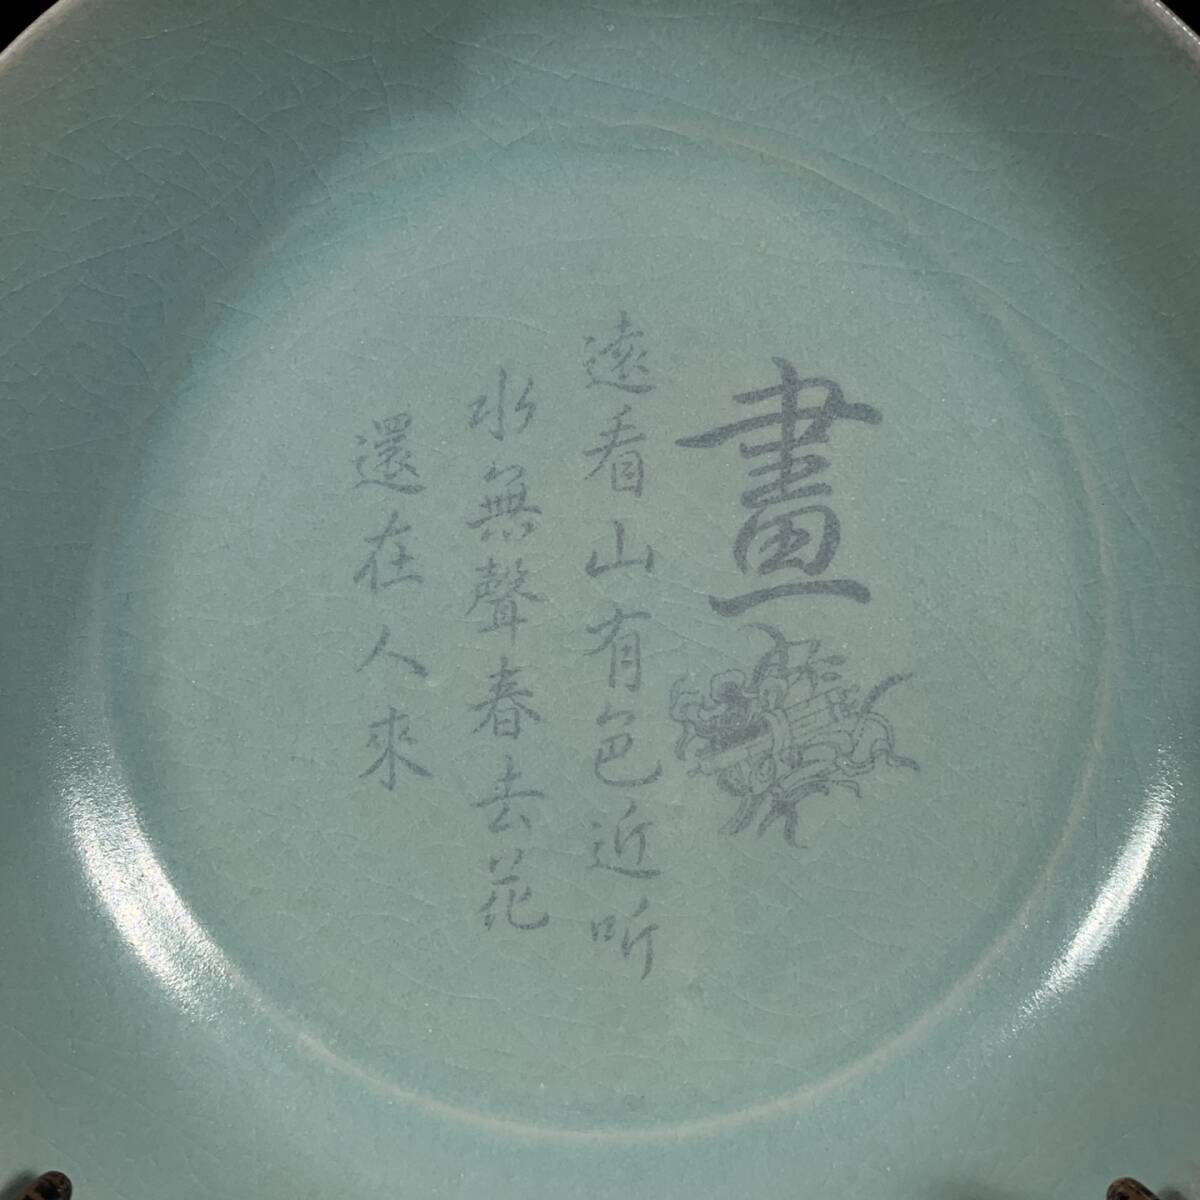 畫
遠看山有色近听
水無聲春去花
還在人來